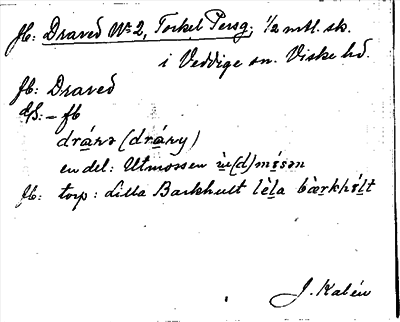 fb: Draved No 2, Torkel Persg; 1/2 mtl. sk.
i Veddige sn. Viske hd.
fb: Draved
Us: - fb
drárə (dráry)
en del: Utmossen ù(d)mósən
fb: torp: Lilla Backhult lèla bàrkhólt
J. Kalén